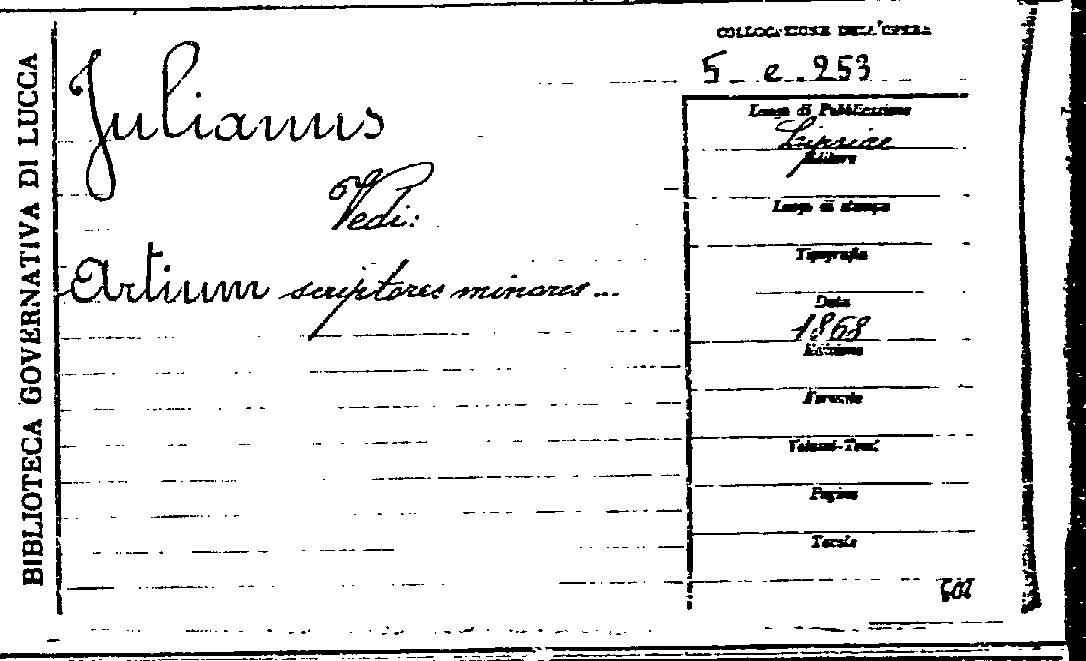 BIBLIOTECA GOVERNATIVA DI LUCCA
Julianus
Vedi:
Artium scriptores minores...
COLLOCAZIONE DELL'OPERA
5 e. 253
Luogo di Pubblicazione
Lipsiae
Editore
Luogo di stampa
Tipografia
Data
1868
Edizione
Formato
Volumi-Tomi
Pagine
Tavole